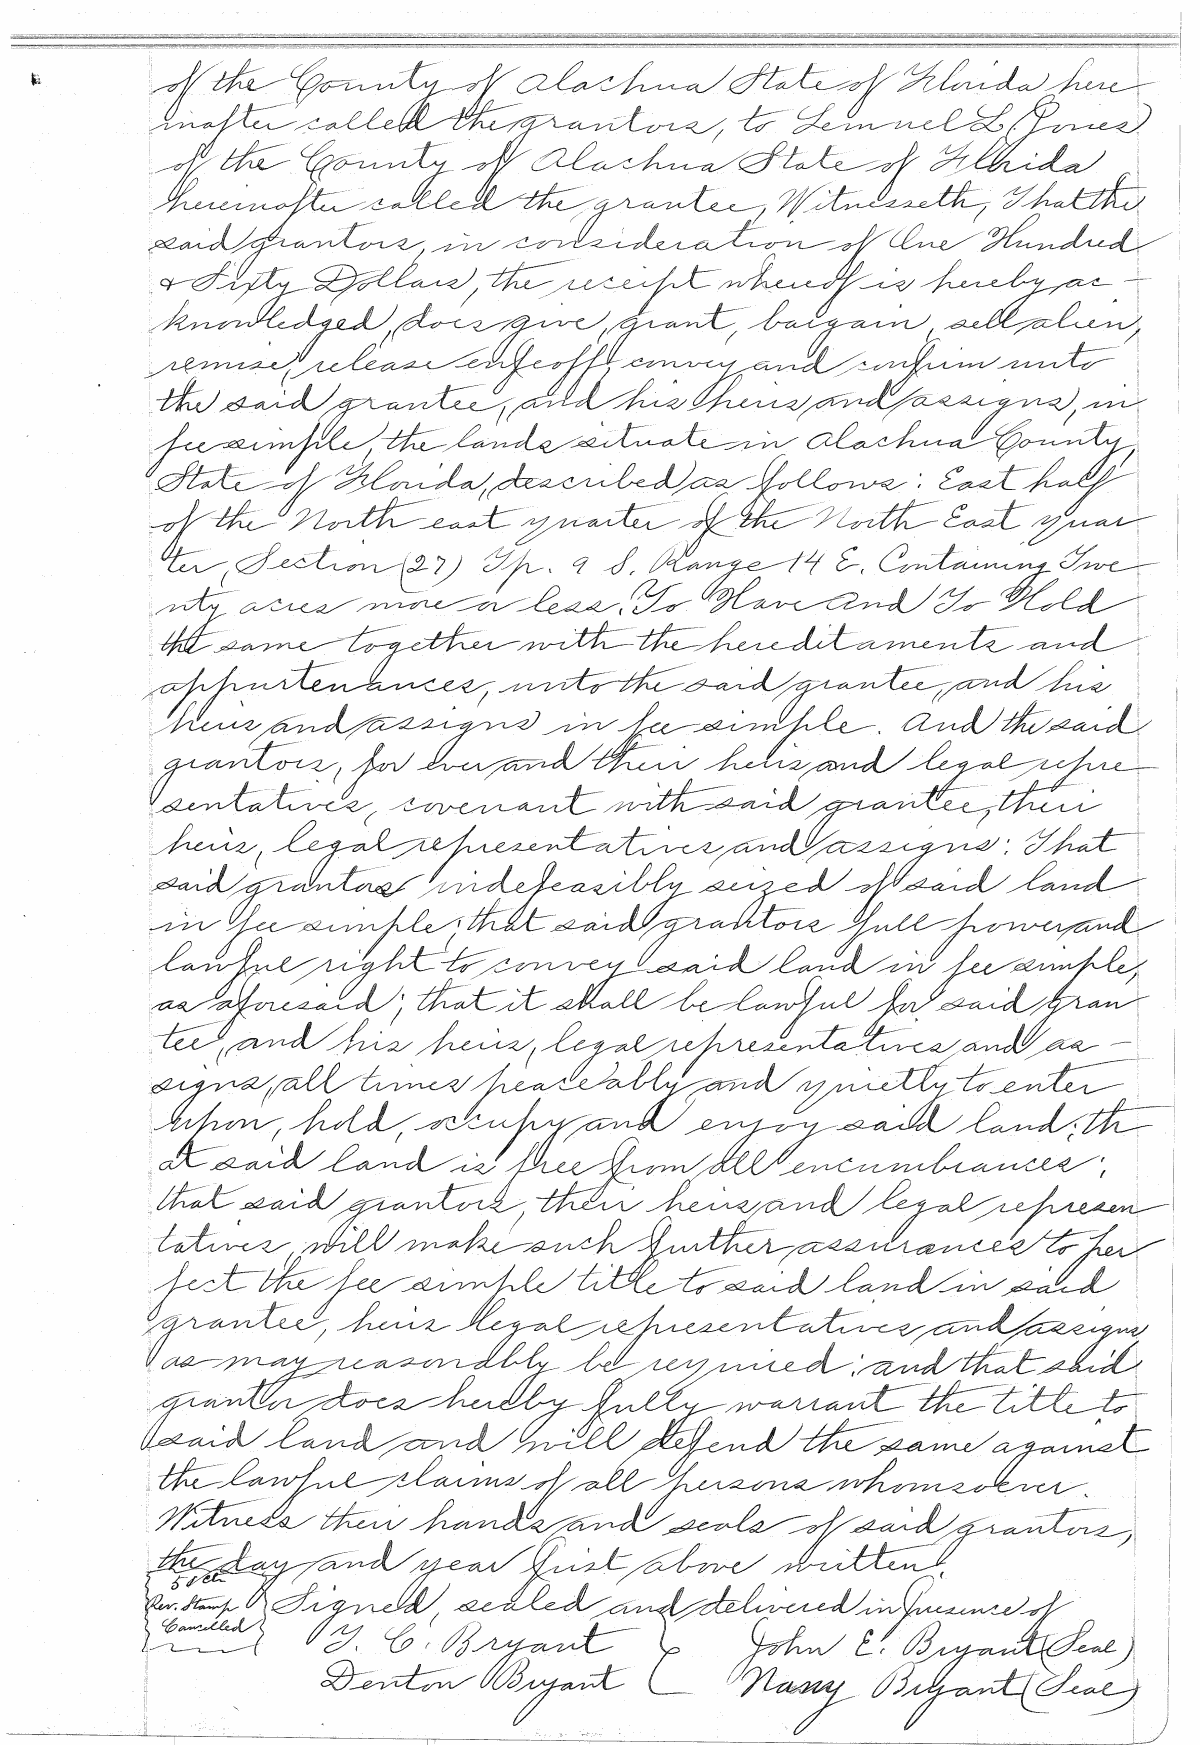 of the County of Alachua State of Florida here
inafter called the grantors, to Lemuel L. Jones
of the County of Alachua State of Florida
hereinafter called the grantee, Witnesseth, That the
said grantors, in consideration of One Hundred
& Sixty Dollars, the receipt whereof is hereby ac-
knowledged, does give, grant, bargain, sell alien,
remise, release enfeoff, convey and confirm unto
the said grantee, and his heirs and assigns, in
fee simple, the lands situate in Alachua County,
State of Florida, described as follows: East half
of the North east quarter of the North East quar
ter, Section (27) Tp. 9 S. Range 14 E. Containing Twe
nty acres more or less. To Have And To Hold
the same together with the hereditaments and
appurtenances, unto the said grantee, and his
heirs and assigns in fee simple. And the said
grantors, for ever and their heirs and legal repre
sentatives, covenant with said grantee, their
heirs, legal representatives and assigns: That
said grantors indefeasibly seized of said land
in fee simple; that said grantors full power and
lawful right to convey said land in fee simple,
as aforesaid; that it shall be lawful for said gran
tee, and his heirs, legal representatives and as-
signs, all times peaceably and quietly to enter
upon, hold, occupy and enjoy said land; th
at said land is free from all encumbrances;
that said grantors, their heirs and legal represen
tatives, will make such further assurances to per
fect the fee simple title to said land in said
grantee, heirs legal representatives and assigns
as may reasonably be required; and that said
grantor does hereby fully warrant the title to
said land and will defend the same against
the lawful claims of all persons whomsoever.
Witness their hands and seals of said grantors,
the day and year first above written.
50cts
Rev. Stamp Signed, sealed and delivered in presence of
Cancelled
J. C. Bryant John E. Bryant (Seal)
Denton Bryant Nany Bryant (Seal)